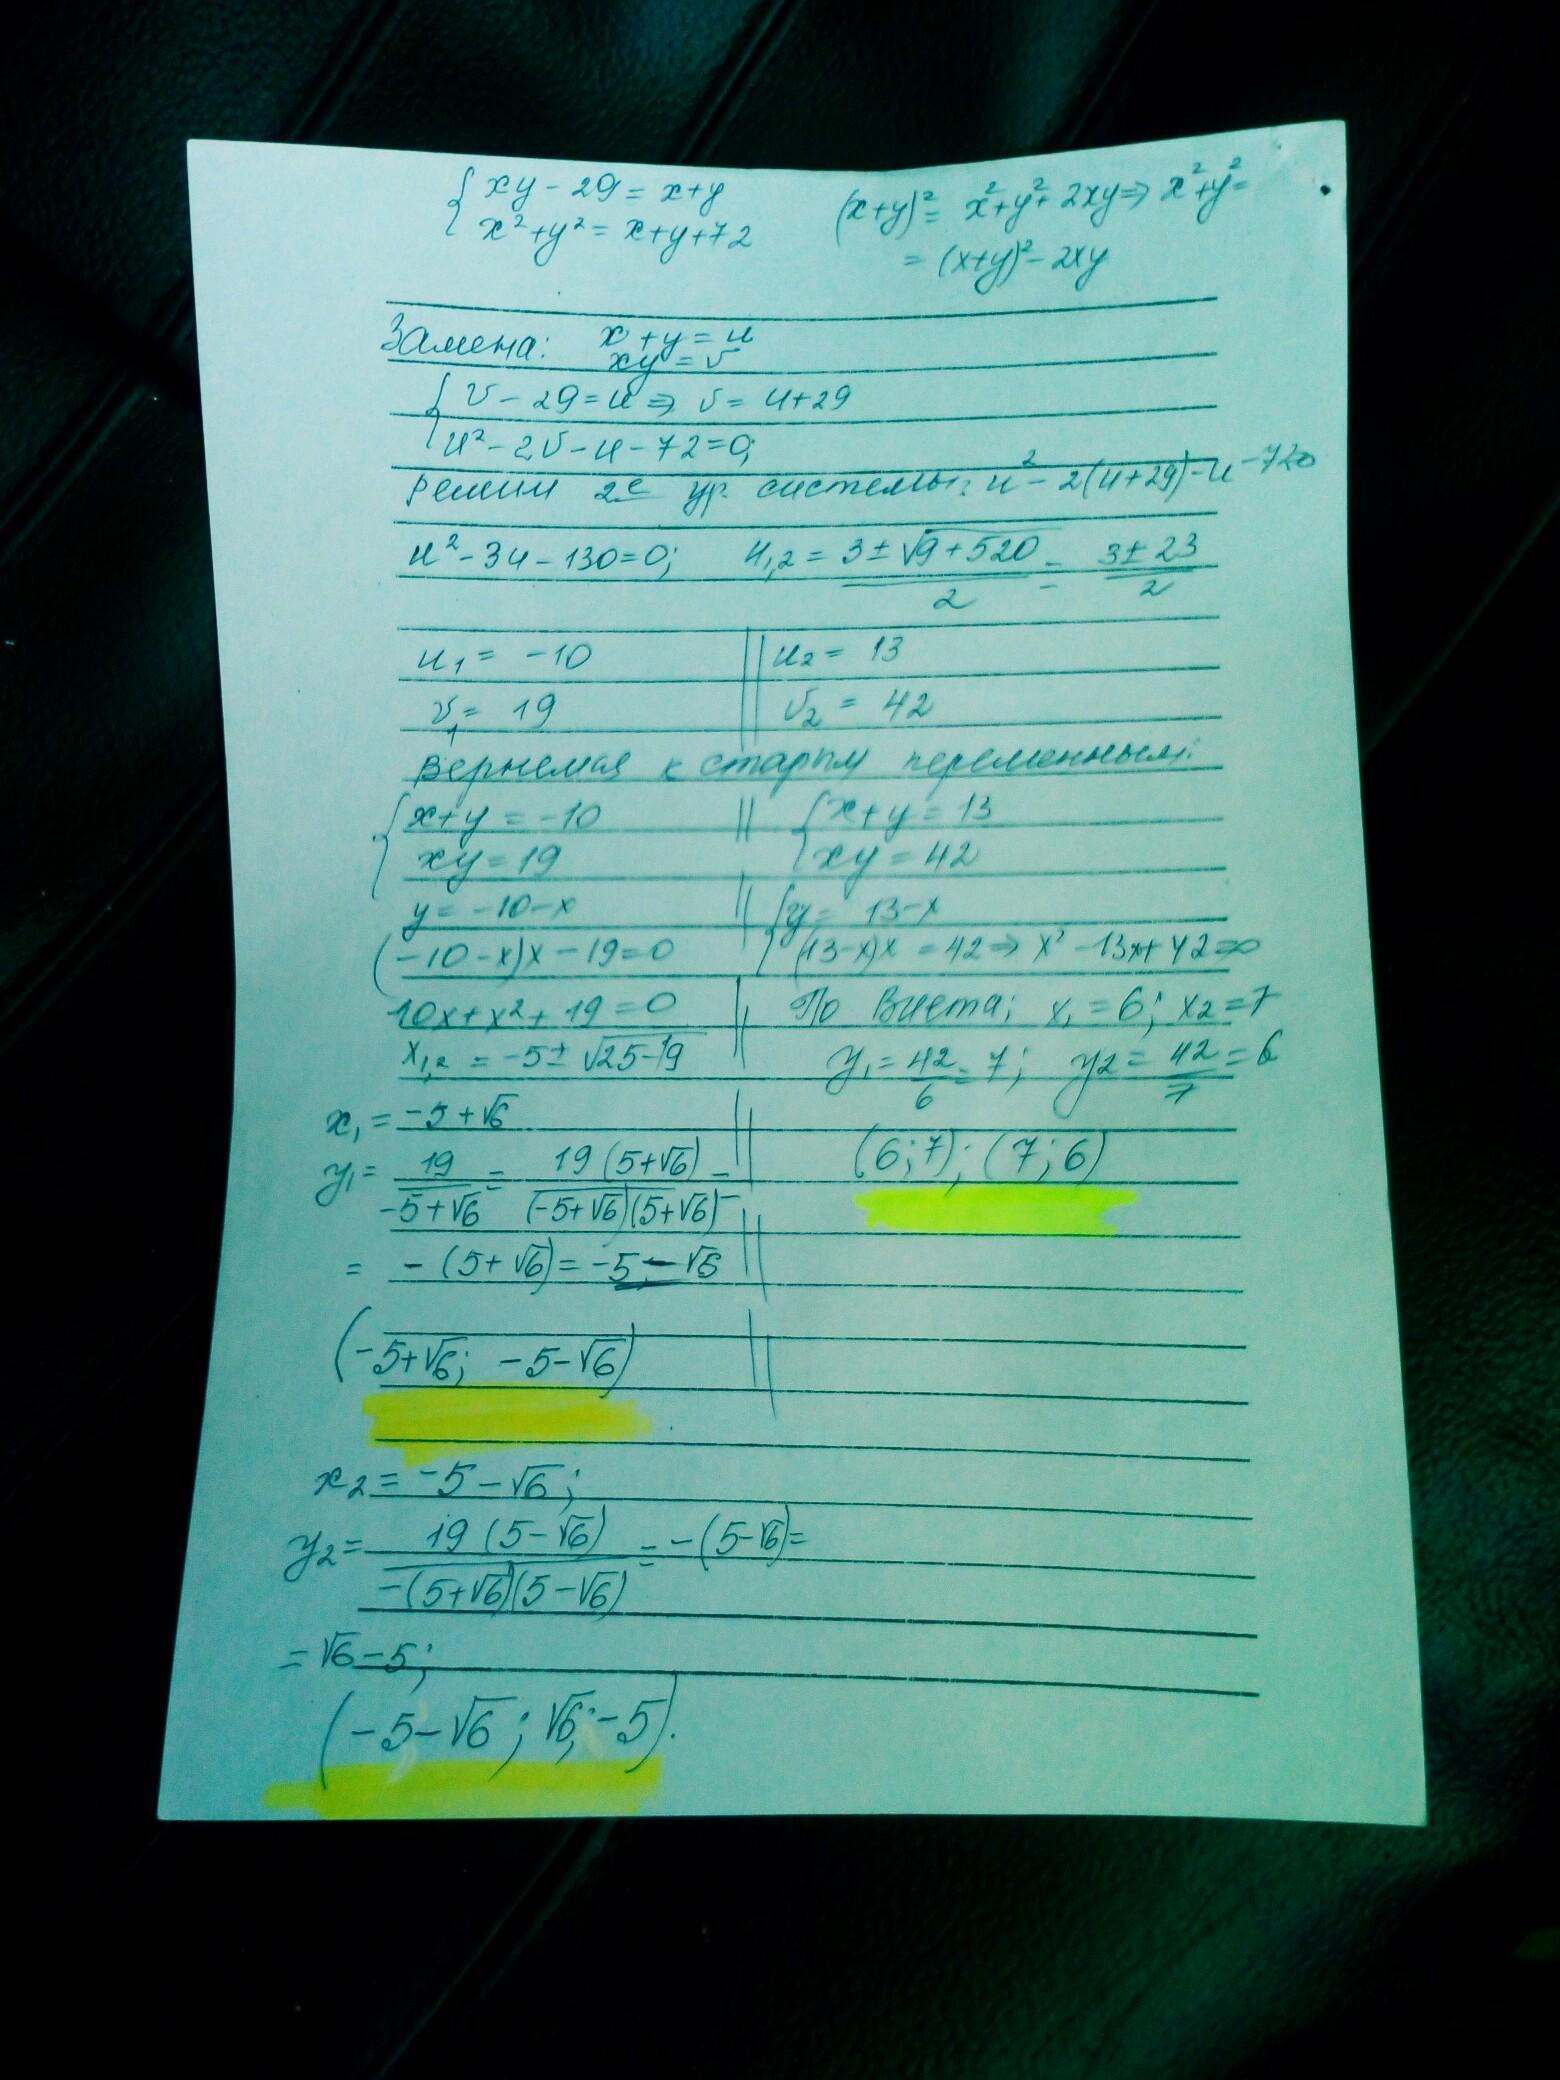 { xy - 29 = x+y
x² + y² = x+y+72
(x+y)² = x² + y² + 2xy ⇒ x² + y² =
= (x+y)² - 2xy
Замена: x + y = u
xy = v
{ v - 29 = u ⇒ v = u+29
u² - 2v - u - 72 = 0;
Решим 2е ур. системы: u² - 2(u+29) - u - 72=0
u² - 3u - 130 = 0; u1,2 = (3 ± √(9+520))/2 = (3 ± 23)/2
u1 = -10 || u2 = 13
v1 = 19 || v2 = 42
Вернемся к старым переменным:
{ x+y = -10 || { x+y = 13
xy = 19 xy = 42
y = -10-x || { y = 13-x
(-10-x)x - 19 = 0 (13-x)x = 42 ⇒ x² - 13x + 42 = 0
10x + x² + 19 = 0 || По Виета; x1 = 6; x2 = 7
x1,2 = -5 ± √(25-19) || y1 = 42/6 = 7; y2 = 42/7 = 6
x1 = -5 + √6 || (6;7); (7;6)
y1 = 19/(-5+√6) = 19(5+√6)/((-5+√6)(5+√6)) =
= -(5+√6) = -5 - √6 ||
(-5+√6; -5-√6) ||
x2 = -5 - √6;
y2 = 19(5-√6)/(-(5+√6)(5-√6)) = -(5-√6) =
= √6 - 5;
(-5-√6; √6;-5).